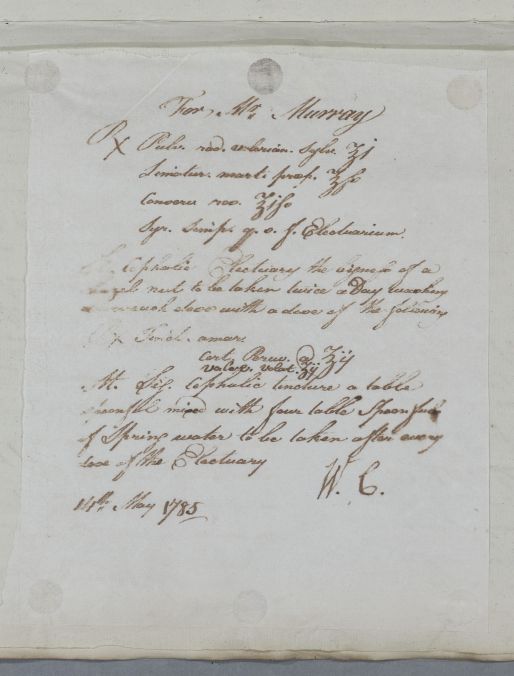 For Mr Murray
Rx Pulv. rad. valerian. Sylv. ʒj
Limatur. marti. prep. ʒſs
Conserv. ros. ʒiſs
Syr. Simp. q. s. f. Electuarium.
Cephalic Electuary the bigness of a
nut to be taken twice a Day washing
each dose with a dose of the following
Rx Tinct. amar.
Cort. Peruv. a ʒij
valer. volat. ʒij
M. Sig. Cephalic tincture a table
spoonful mixed with four table Spoonfuls
of Spring water to be taken after every
dose of the Electuary
W. C.
14th May 1785